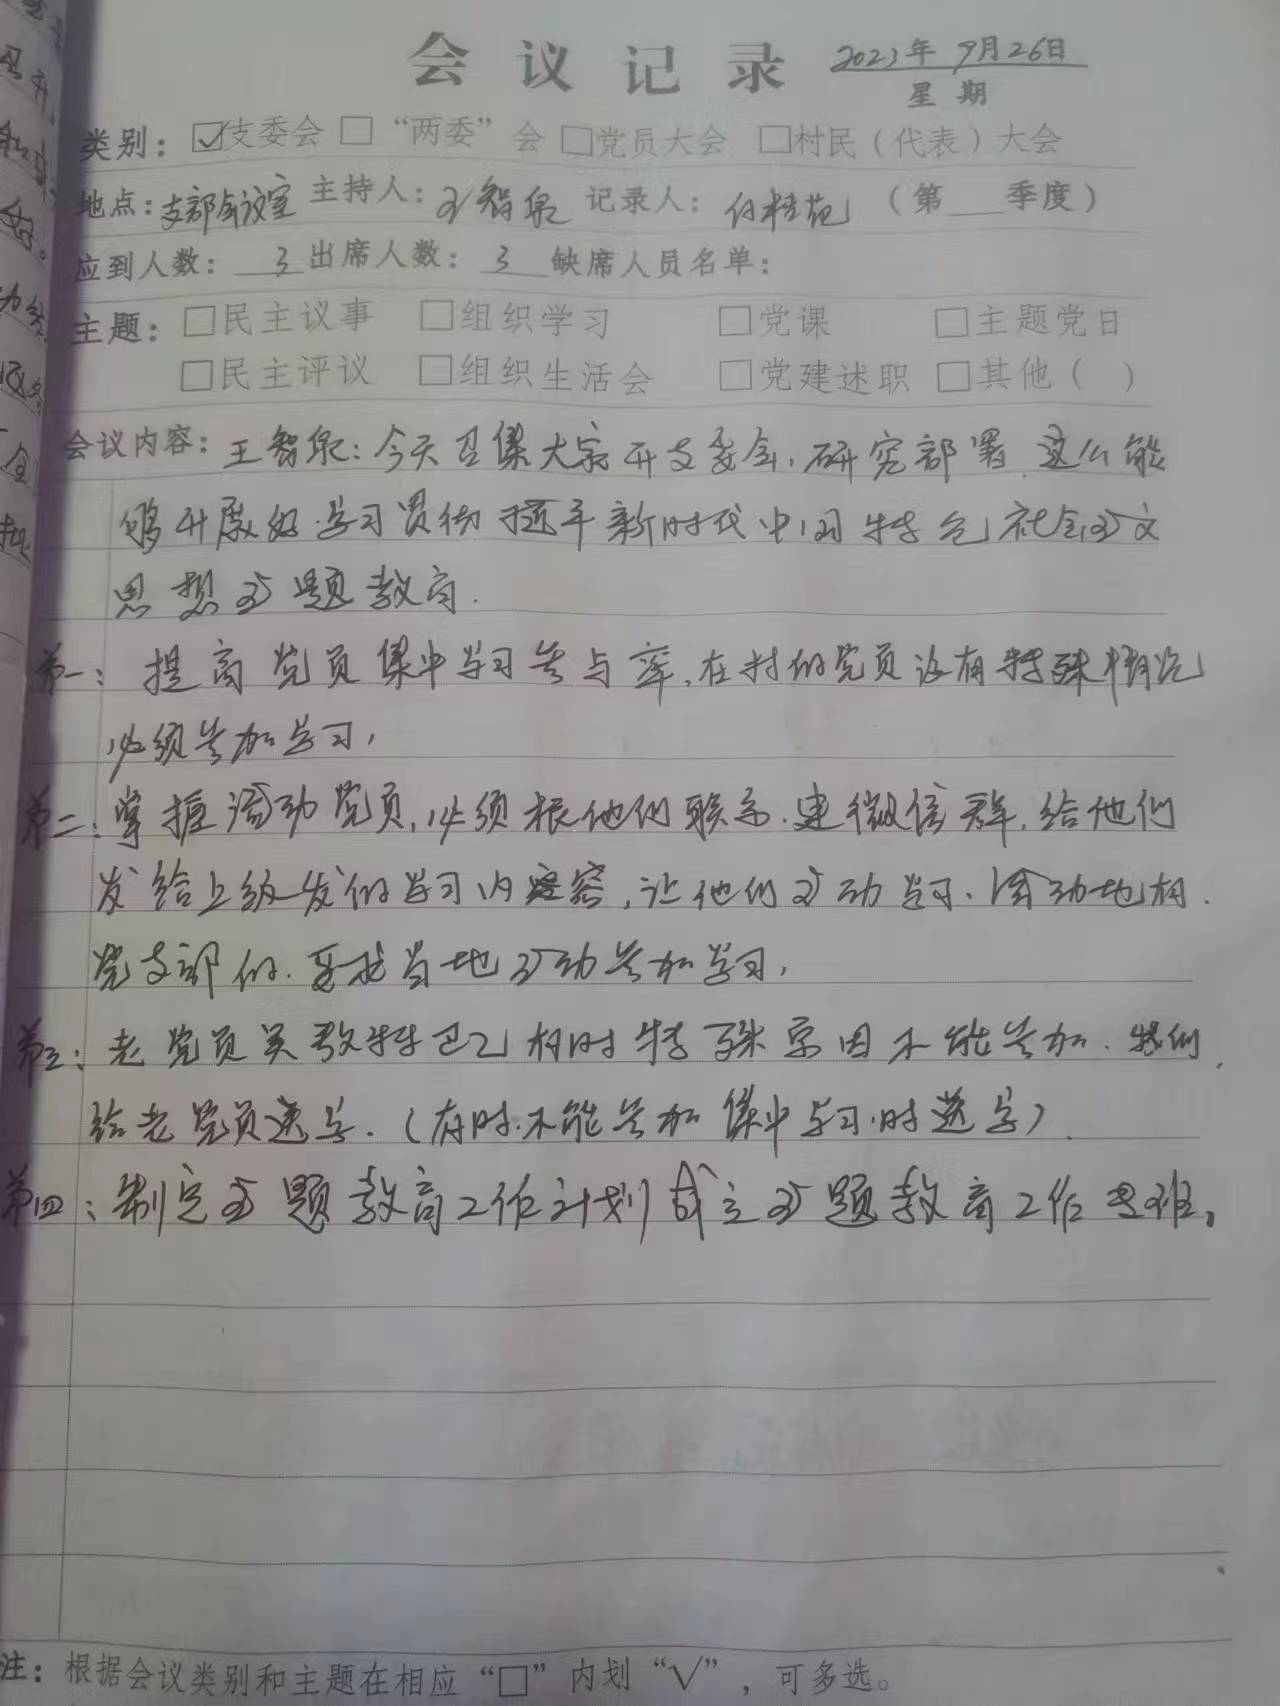 会议记录 2023年9月26日
星期
类别：☑支委会 □“两委”会 □党员大会 □村民（代表）大会
地点：支部会议室 主持人：王智泉 记录人：付桂苑 （第 季度）
应到人数：3 出席人数：3 缺席人员名单：
主题：□民主议事 □组织学习 □党课 □主题党日
□民主评议 □组织生活会 □党建述职 □其他（ ）
会议内容：王智泉：今天召集大家开支委会，研究部署 这么能
够开展好学习贯彻 近平新时代中国特色社会主义
思想主题教育.
第一：提高党员集中学习参与率，在村的党员没有特殊情况
必须参加学习，
第二：掌握流动党员，必须根他们联系.建微信群，给他们
发给上级发的学习内容，让他们主动学习、流动地有.
党支部的.要找当地主动参加学习，
第三：老党员 有时特殊原因不能参加.我们
给老党员送学.（有时不能参加集中学习时送学）
第四：制定主题教育工作计划成立主题教育工作专班。
注：根据会议类别和主题在相应“□”内划“√”，可多选。